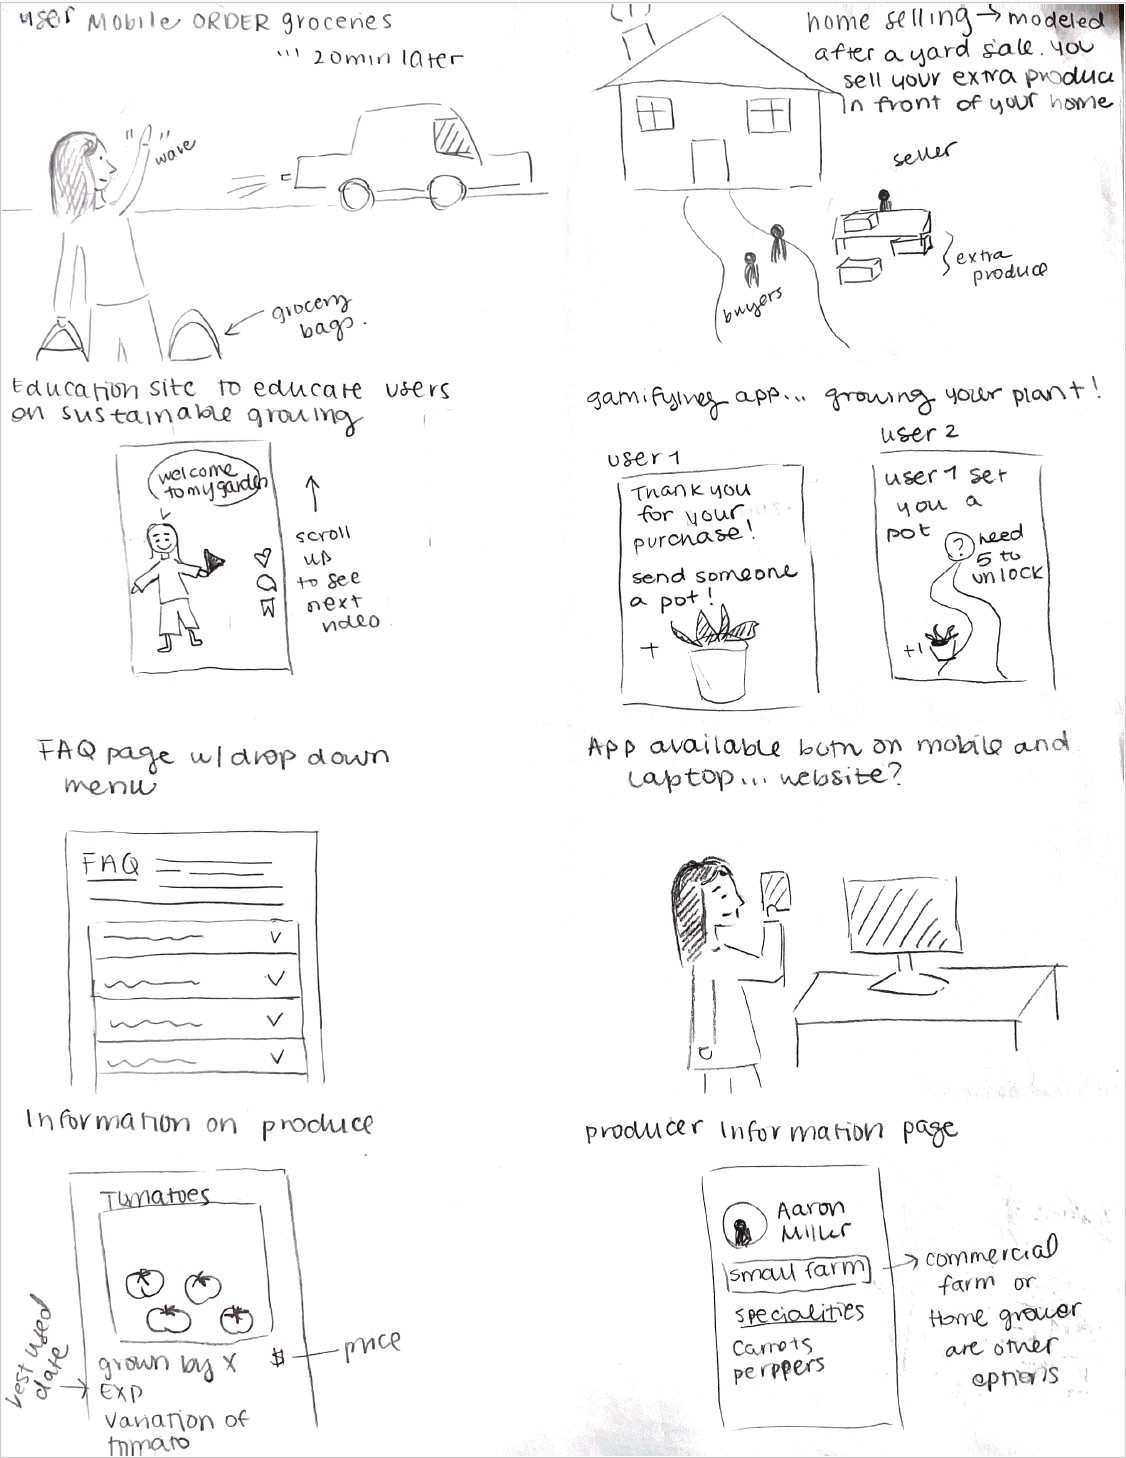 user Mobile ORDER groceries
... 20min later
"wave"
grocery
bags.
home selling → modeled
after a yard sale. you
sell your extra produce
in front of your home
seller
extra
produce
buyers
Education site to educate users
on sustainable growing
welcome
to my garden
scroll
up
to see
next
video
gamifying app... growing your plant!
user 1
Thank you
for your
purchase!
send someone
a pot!
+
user 2
user 1 set
you a
pot
? need
5 to
unlock
+1
FAQ page w/ drop down
menu
FAQ
App available both on mobile and
laptop... website?
Information on produce
Tumatoes
grown by X
$ — price
best used
date
EXP
variation of
tomato
producer information page
Aaron
Miller
small farm
specialities
carrots
perppers
commercial
farm or
Home grower
are other
options